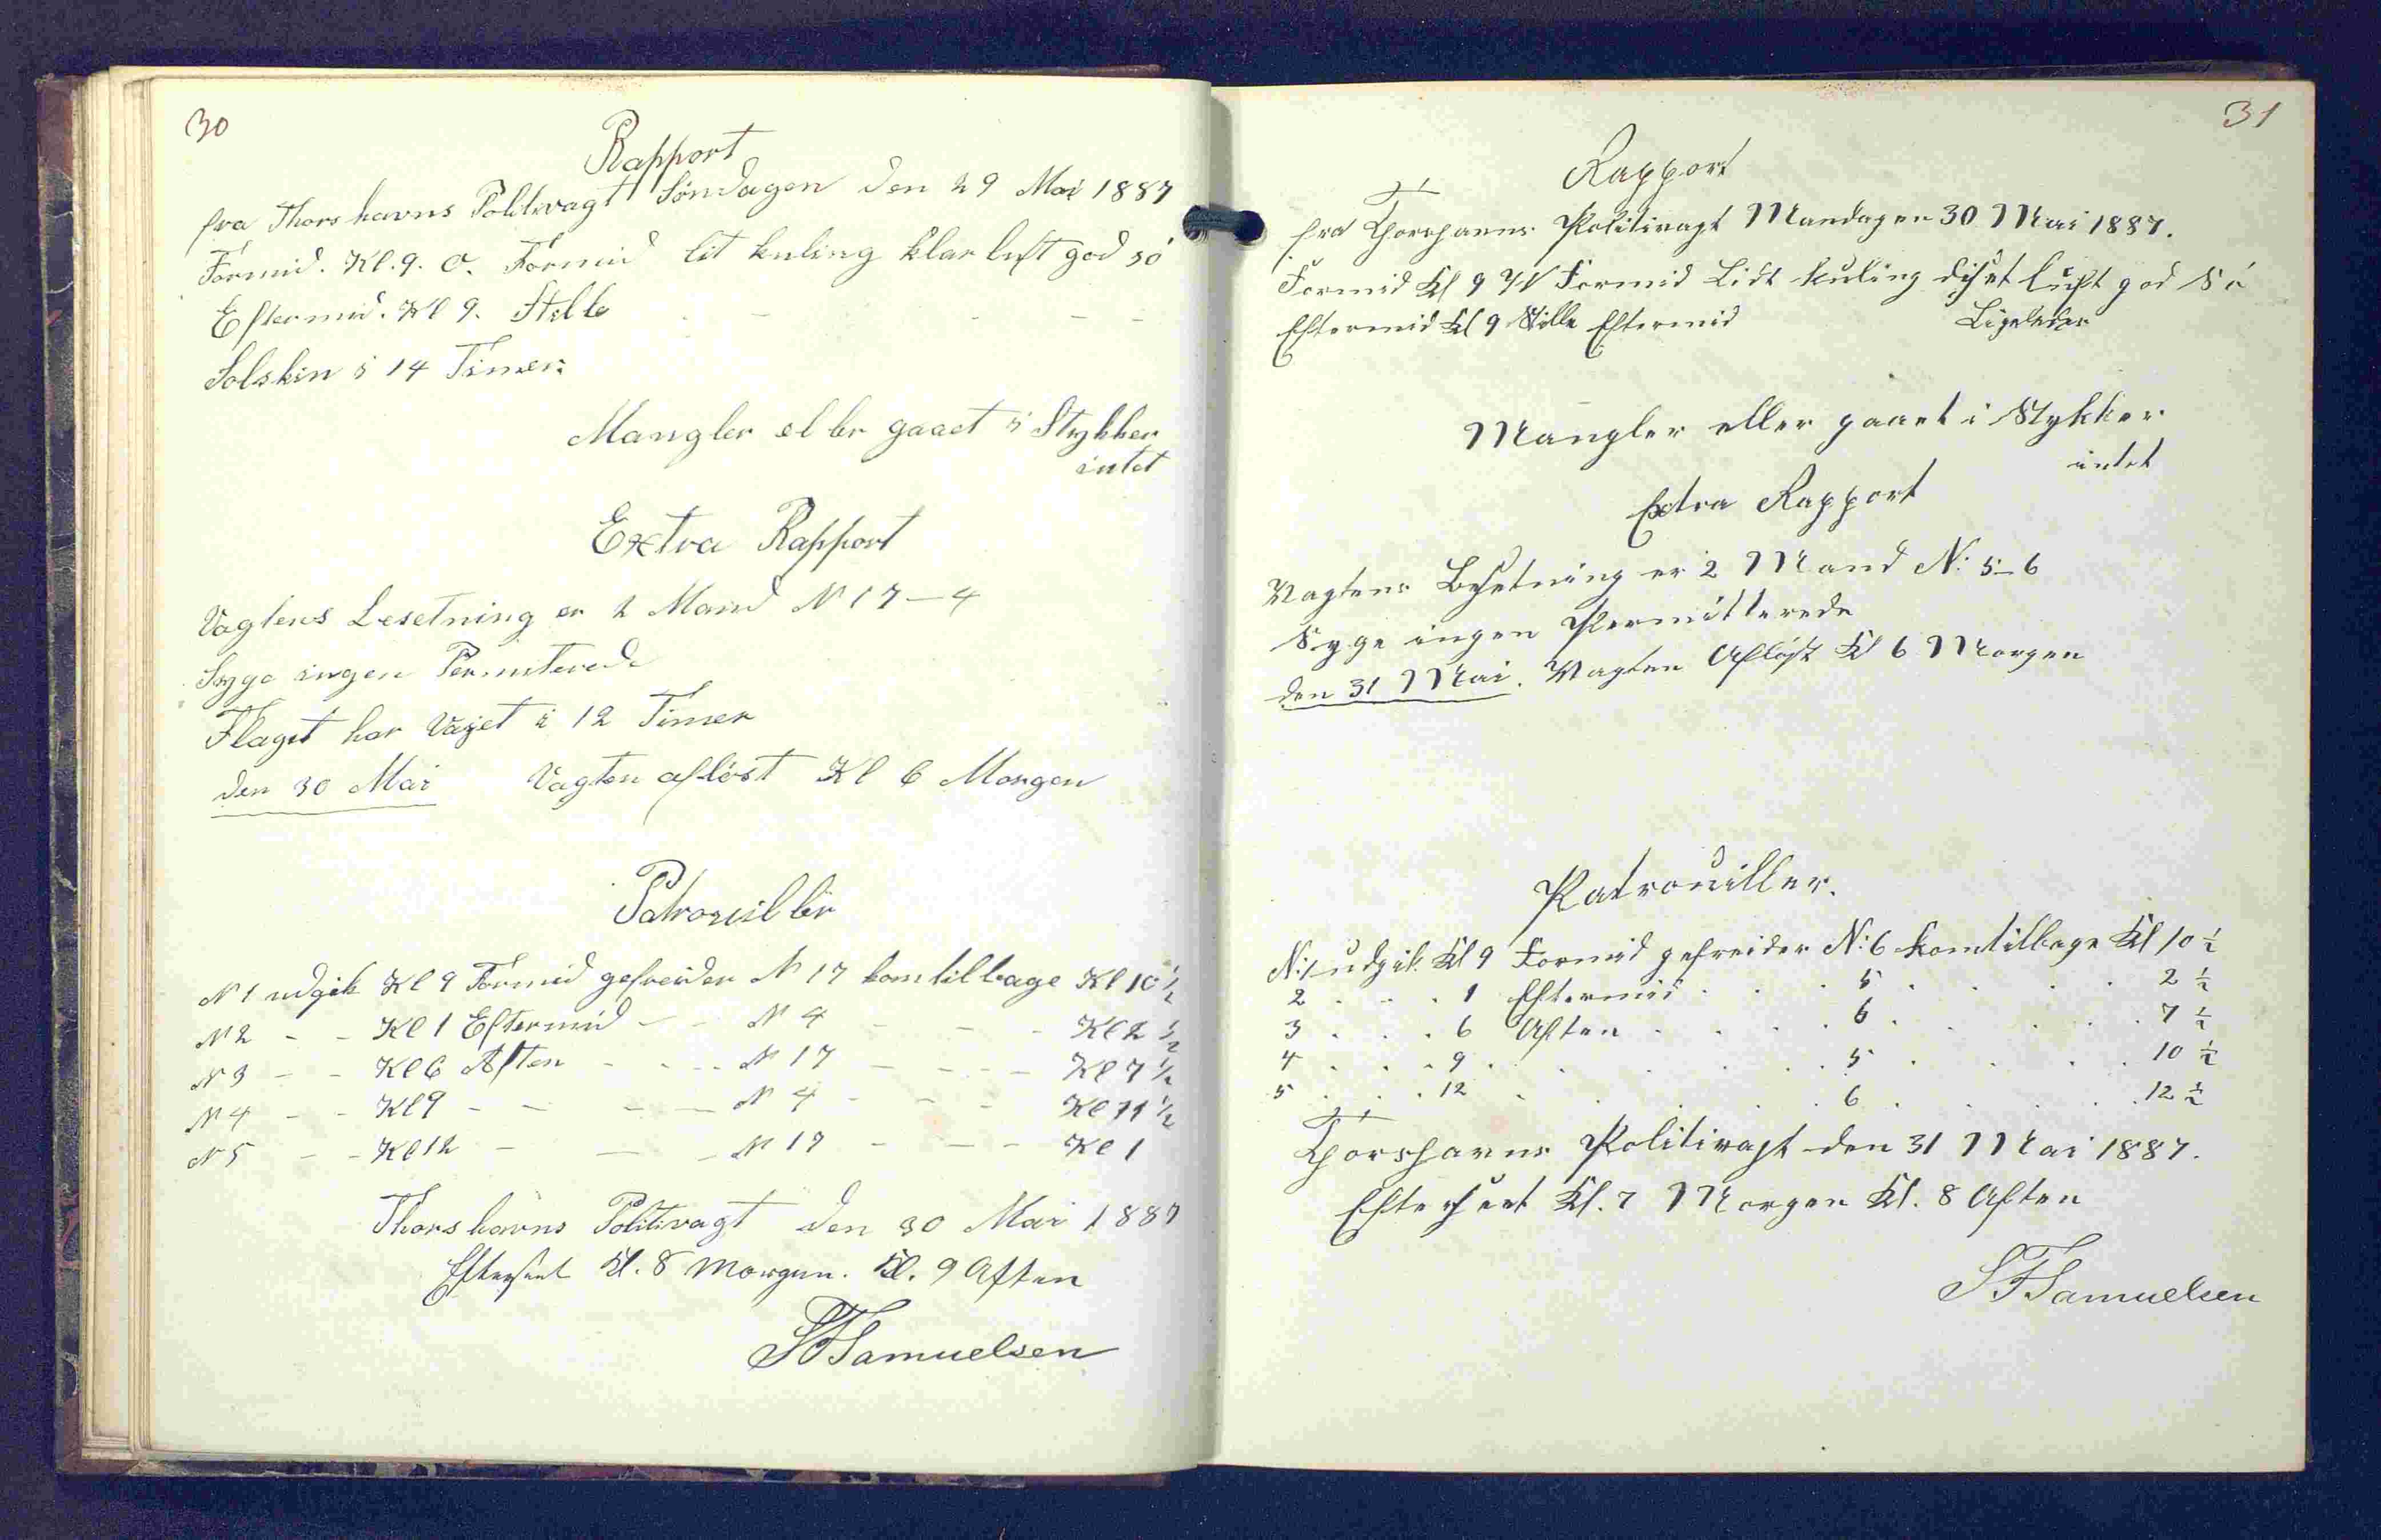 30
Rapport
fra Thorshavns Politivagt Söndagen den 29 Mai 1887
Formid. Kl. 9. O. Formid lit kuling klar luft god sö
Eftermid. Kl 9. Stille - - - -
Solskin i 14 Timer.
Mangler eller gaaet i Stykker
intet
Extra Rapport
Vagtens Besetning er 2 Mand N 17-4
Syge ingen Permiterede
Flaget har Vajet i 12 Timer
den 30 Mai Vagten aflöst Kl 6 Morgen
Patrouiller
N 1 udgik Kl 9 Formid gefreider N 17 kom tilbage Kl 10 1/2
N 2 - - Kl 1 Eftermid - - N 4 - - - Kl 2 1/2
N 3 - - Kl 6 Aften - - - N 17 - - - - Kl 7 1/2
N 4 - - Kl 9 - - - - N 4 - - - Kl 11 1/2
N 5 - - Kl 12 - - - N 17 - - - Kl 1
Thorshavns Politivagt den 30 Mai 1887
Efterseet Kl. 8 Morgen. Kl. 9 Aften
SFSamuelsen
31
Rapport
fra Thorshavns Politivagt Mandagen 30 Mai 1887.
Formid Kl 9 Formid Lidt kuling diset luft god Sö
Eftermid Kl 9 Stille Eftermid Ligeledes
Mangler eller gaaet i Stykker
intet
Extra Rapport
Vagtens Besetning er 2 Mand N: 5-6
Syge ingen Permitterede
den 31 Mai. Vagten Aflöst Kl 6 Morgen
Patrouiller.
N: 1 udgik Kl 9 Formid gefreider N: 6 kom tilbage Kl 10 1/2
2 . . . 1 Eftermid . . . 5 . . . . 2 1/2
3 . . . 6 Aften . . . . 6 . . . . 7 1/2
4 . . . 9 . . . . . 5 . . . . 10 1/2
5 . . . 12 . . . . . 6 . . . . 12 1/2
Thorshavns Politivagt den 31 Mai 1887.
Efterseet Kl. 7 Morgen Kl. 8 Aften
SFSamuelsen